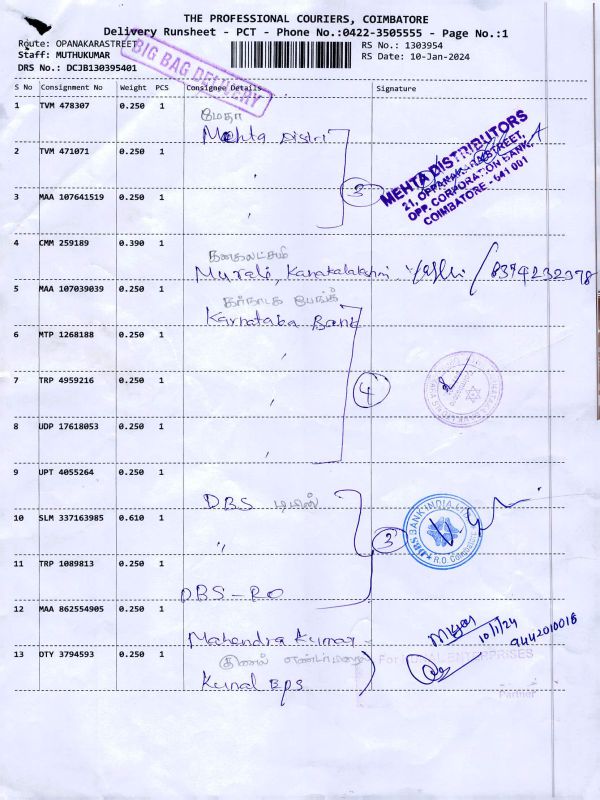 THE PROFESSIONAL COURIERS, COIMBATORE
Delivery Runsheet - PCT - Phone No.:0422-3505555 - Page No.:1
Route: OPANAKARASTREET
RS No.: 1303954
Staff: MUTHUKUMAR
RS Date: 10-Jan-2024
DRS No.: DCJB130395401
BIG BAG DELIVERY
S No Consignment No Weight PCS Consignee Details Signature
1 TVM 478307 0.250 1
மேதா
Mehta Distri
2 TVM 471071 0.250 1
"
3 MAA 107641519 0.250 1
"
3
MEHTA DISTRIBUTORS
21, OPPANAKARA STREET,
OPP. CORPORATION BANK,
COIMBATORE - 641 001
4 CMM 259189 0.390 1
கனகலட்சுமி
Murali, Kanakalakshmi 8394232378
5 MAA 107039039 0.250 1
கர்நாடக பேங்க்
Karnataka Bank
6 MTP 1268188 0.250 1
"
7 TRP 4959216 0.250 1
"
4
8 UDP 17618053 0.250 1
"
9 UPT 4055264 0.250 1
DBS
10 SLM 337163985 0.610 1
"
3
DBS BANK INDIA LTD
R.O. COIMBATORE
11 TRP 1089813 0.250 1
DBS-RO
12 MAA 862554905 0.250 1
Mahendra Kumar
10/1/24
9442010016
13 DTY 3794593 0.250 1
Kunal Eps
For KUNAL ENTERPRISES
Partner